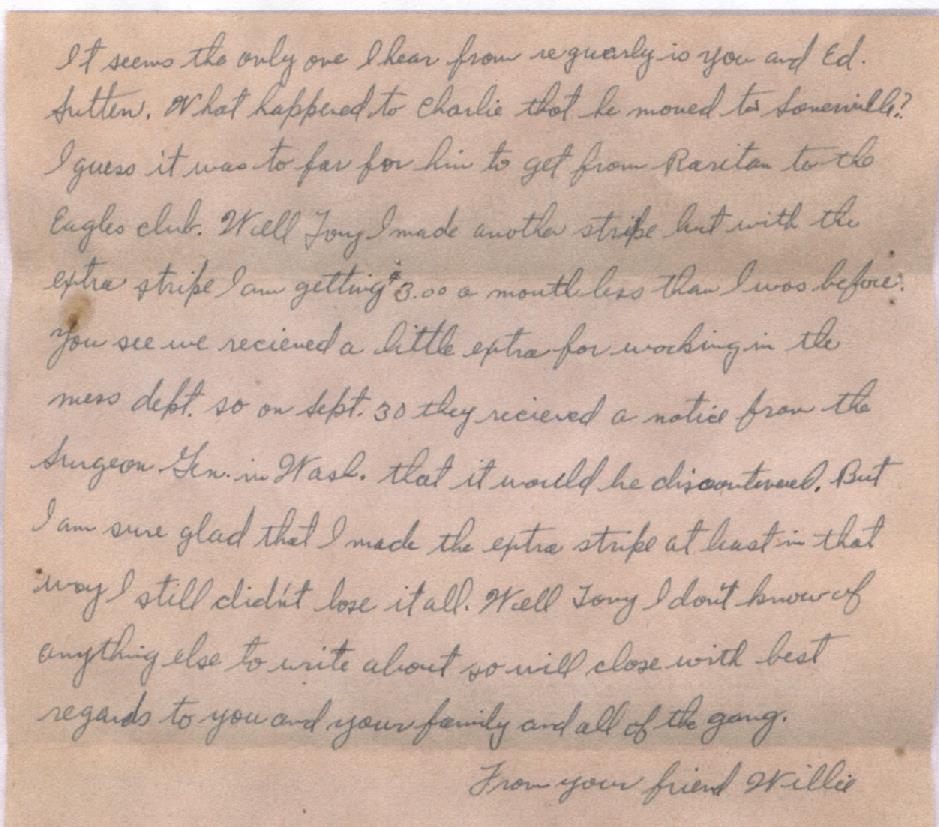 It seems the only one I hear from reguarly is you and Ed.
Sutten. What happened to Charlie that he moved to Somerville?
I guess it was to far for him to get from Raritan to the
Eagles club. Well Tony I made another stripe but with the
extra stripe I am getting $3.00 a month less than I was before.
You see we recieved a little extra for working in the
mess dept. so on Sept. 30 they recieved a notice from the
Surgeon Gen. in Wash. that it would be discontinued. But
I am sure glad that I made the extra stripe at least in that
way I still didn't lose it all. Well Tony I don't know of
anything else to write about so will close with best
regards to you and your family and all of the gang.
From your friend Willie